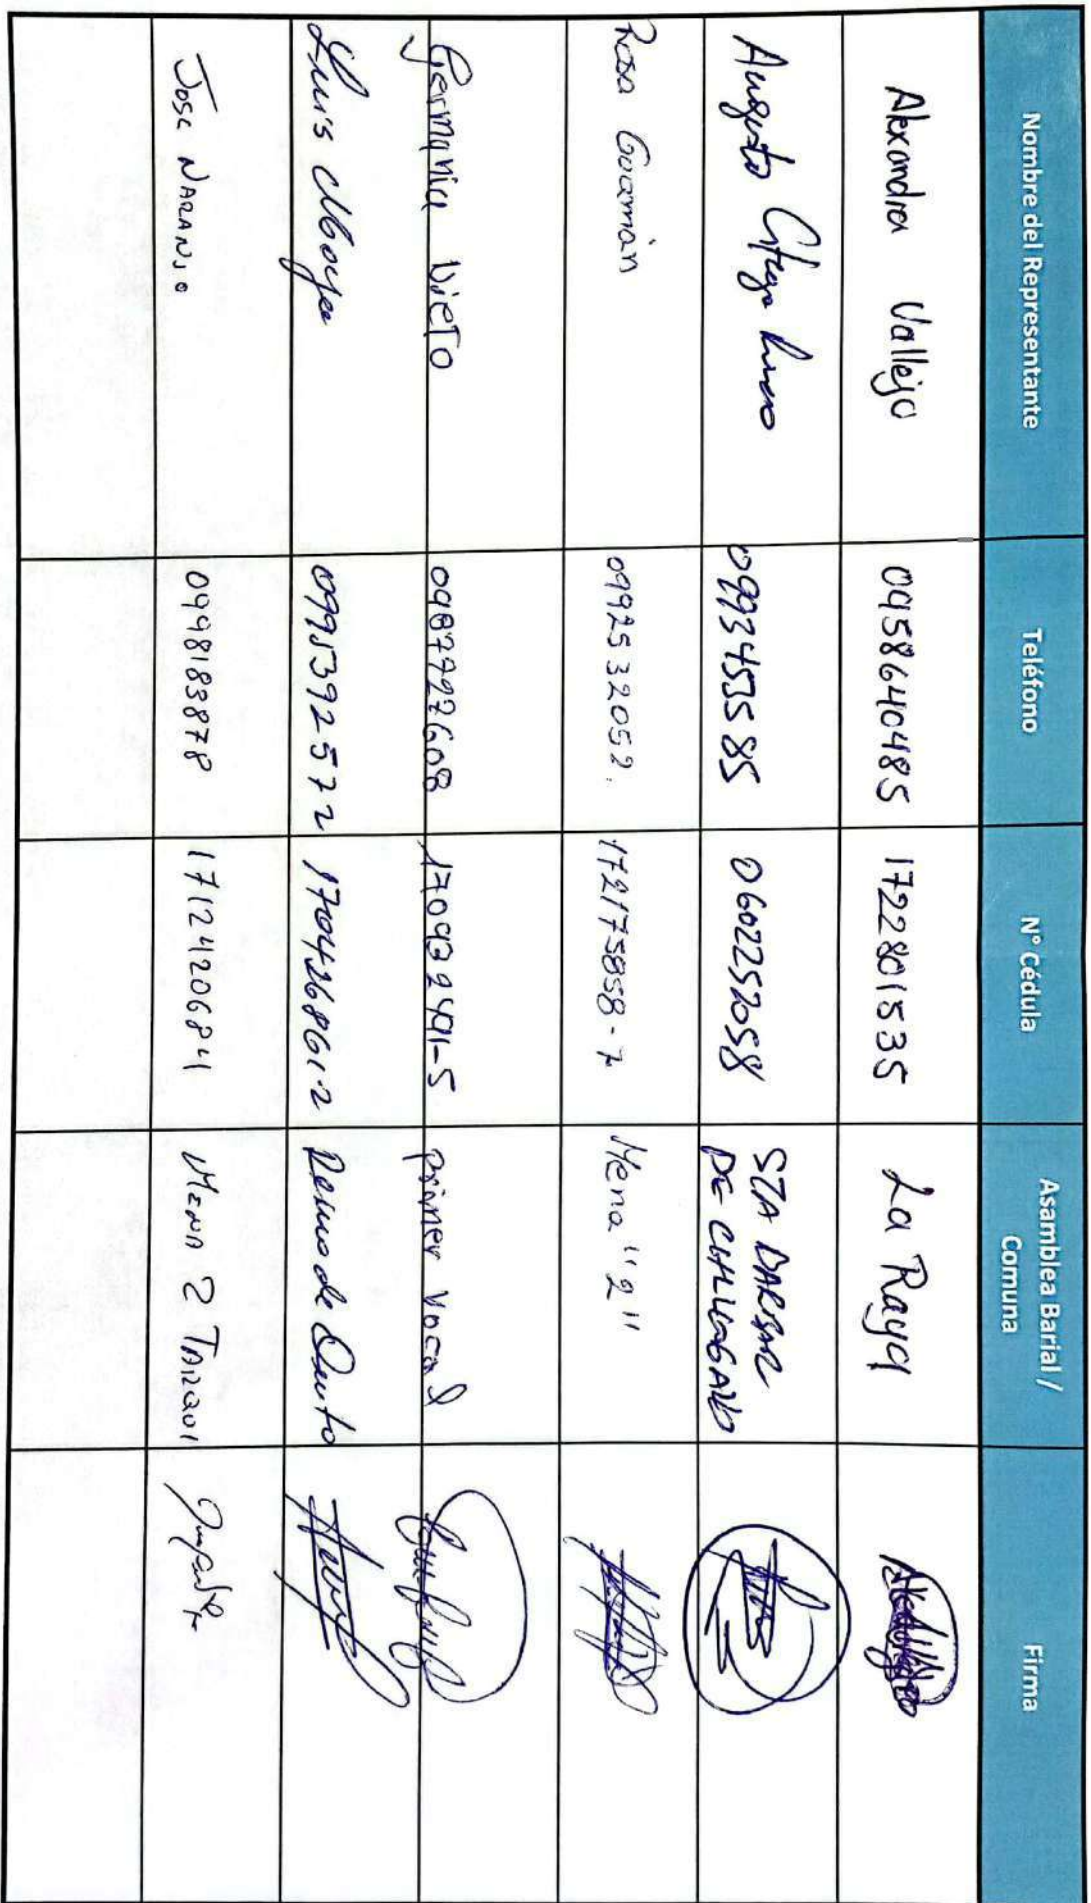 Nombre del Representante Teléfono N° Cédula Asamblea Barial / Comuna Firma
Alexandra Vallejo 0958640485 1722801535 La Raya
Augusto 0993453585 0602252058 STA BARBAR DE CHILLOGALLO
Rosa Guamán 0992532052. 172175858-7 Mena "2"
Germania Nieto 0987727608 170932491-5 primer vocal
Luis Moya 0995392572 170426861-2 Reino de Quito
Jose NARANJO 0998183878 1712420684 MENA 2 TARQUI